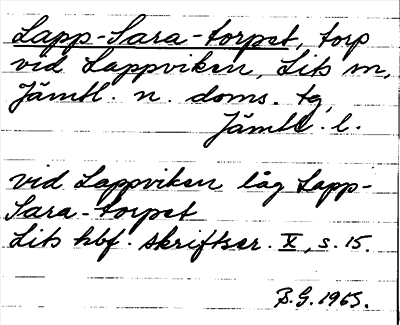 Lapp-Sara-torpet, torp
vid Lappviken, Lits sn,
Jämtl. n. doms. tg,
Jämtl. l.
vid Lappviken låg Lapp-
Sara-torpet
Lits hbf. skriftser. X, s. 15.
B.G. 1965.